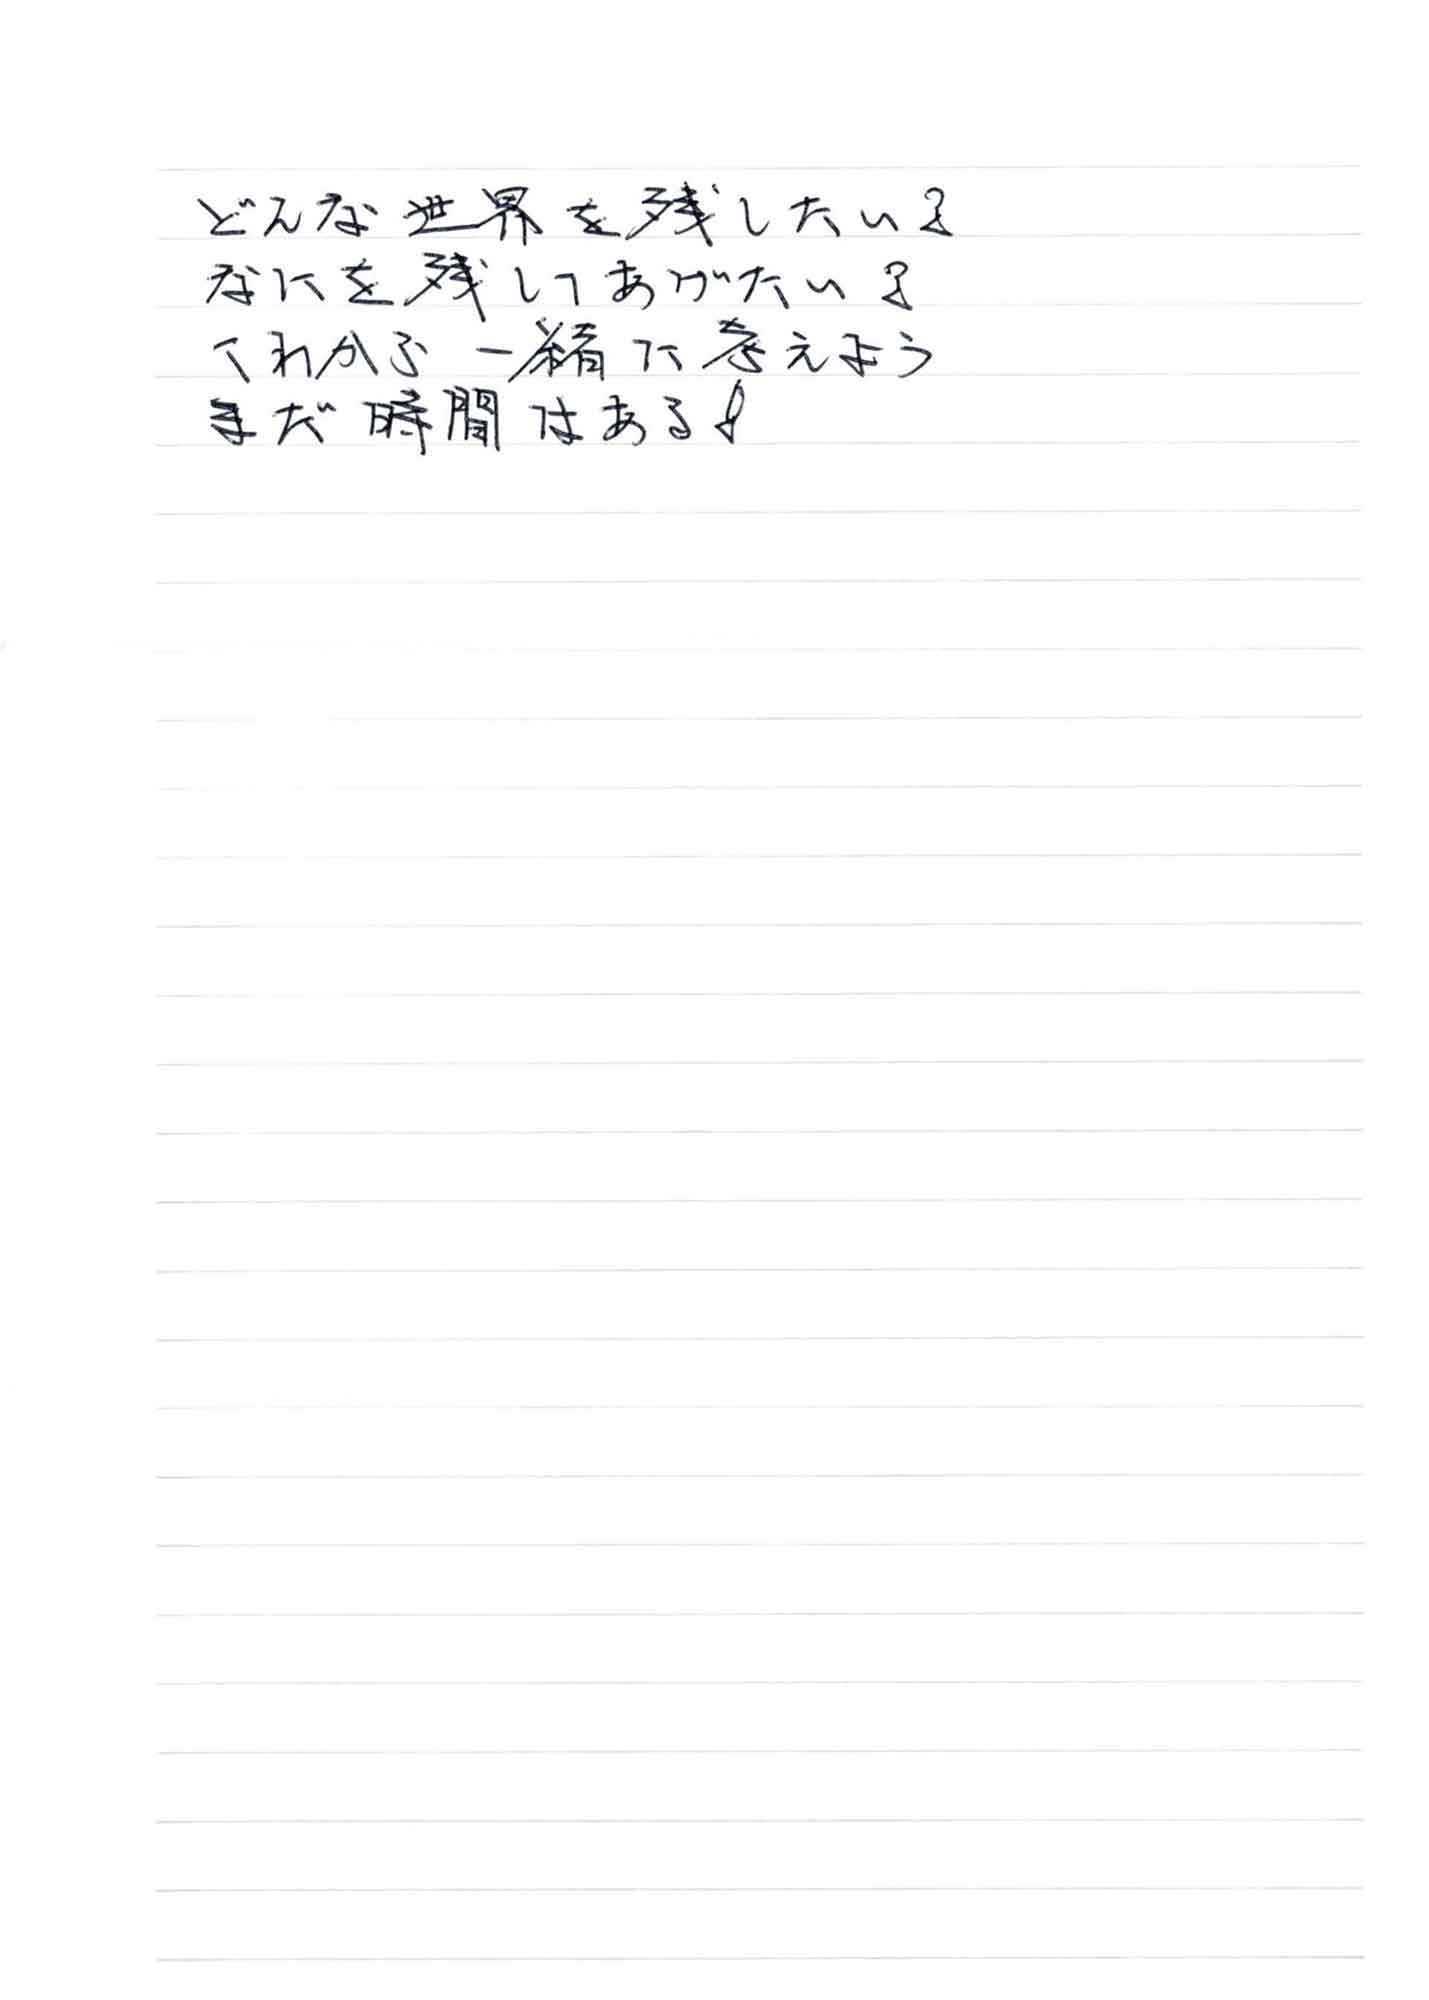 どんな世界を残したい?
なにを残してあげたい?
くわかふ一緒に考えよう
まだ時間はある!